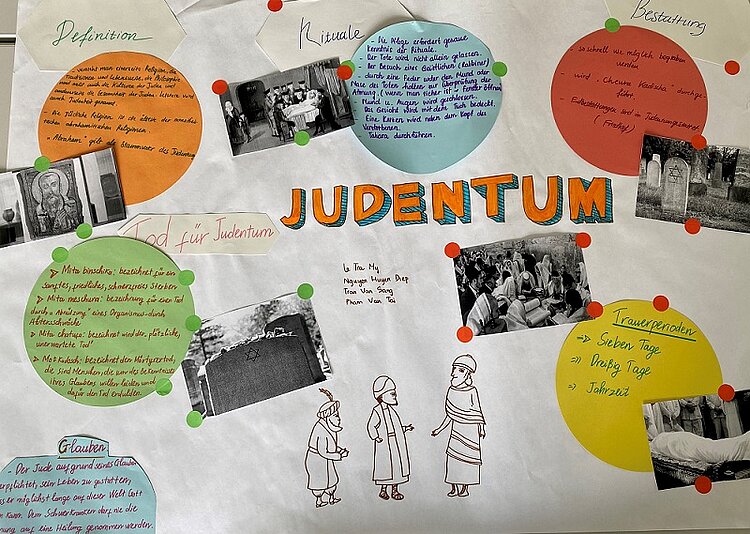 Definition
Rituale
Bestattung
einerseits Religion, die
Traditionen und Lebensweise, die Philosophie
und meist auch die Kulturen der Juden und
andererseits die Gesamtheit der Juden. Letztere wird
auch Judenheit genannt.
- Die jüdische Religion ist die älteste der
abrahamitischen Religionen.
- "Abraham" gilt als Stammvater des Judentums
- Die Pflege erfordert genaue
Kenntnis der Rituale.
- Der Tote wird nicht allein gelassen.
- Der Besuch eines Geistlichen (Rabbiner)
- durch eine Feder unter den Mund oder
Nase des Toten halten zur Überprüfung der
Atmung (wenn man sicher ist → Fenster öffnen)
- Mund u. Augen wird geschlossen.
- Das Gesicht wird mit dem Tuch bedeckt.
- Eine Kerzen wird neben dem Kopf des
Verstorbenen.
- Tahara durchführen.
- so schnell wie möglich begraben
werden
- wird "Chewra Kadischa" durchge-
führt.
(Friedhof)
JUDENTUM
Tod für Judentum
➤ Mita binschika: bezeichnet für ein
sanftes, friedliches, schmerzfreies Sterben
➤ Mita meschuna: bezeichnung für einen Tod
durch "Abnutzung" eines Organismus durch
Altersschwäche
➤ Mita chatufa: bezeichnet wird der, plötzliche,
unerwartete Tod!
➤ Mot Kadosch: bezeichnet den Märtyrertod,
die sind Menschen, die um des Bekenntnisses
ihres Glaubens willen leiden und
dafür den Tod erdulden.
Le Tra My
Nguyen Huyen Diep
Tran Van Sang
Pham Van Tai
Trauerperioden
=> Sieben Tage
=> Dreißig Tage
=> Jahrzeit
Glauben
- Der Jude aufgrund seines Glauben
verpflichtet, sein Leben zu gestalten,
dass er möglichst lange auf dieser Welt Gott
kann. Dem Schwerkranken darf nie die
auf eine Heilung genommen werden.